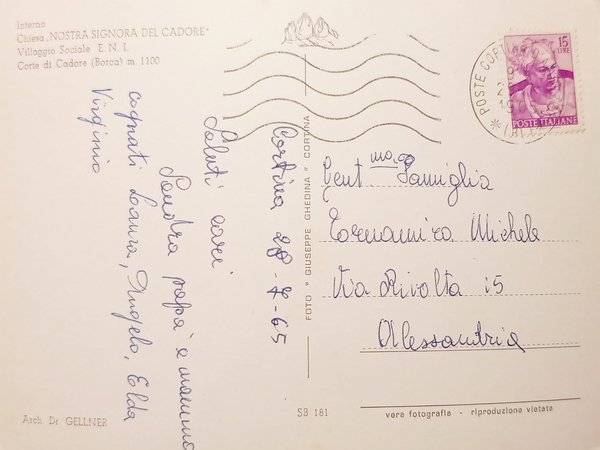 Interno
Chiesa „NOSTRA SIGNORA DEL CADORE"
Villaggio Sociale E. N. I.
Corte di Cadore (Borca) m. 1100
15
LIRE
POSTE ITALIANE
POSTE CORTINA
Cortina 28-7-65
Saluti cari
Sandra papà e mamma
cognati Laura, Angelo, Elda
Virginio
FOTO " GIUSEPPE GHEDINA " CORTINA
Gent.ma Famiglia
Tornamira Michele
Via Rivolta 15
Alessandria
Arch. Dr GELLNER
SB 181
vera fotografia - riproduzione vietata